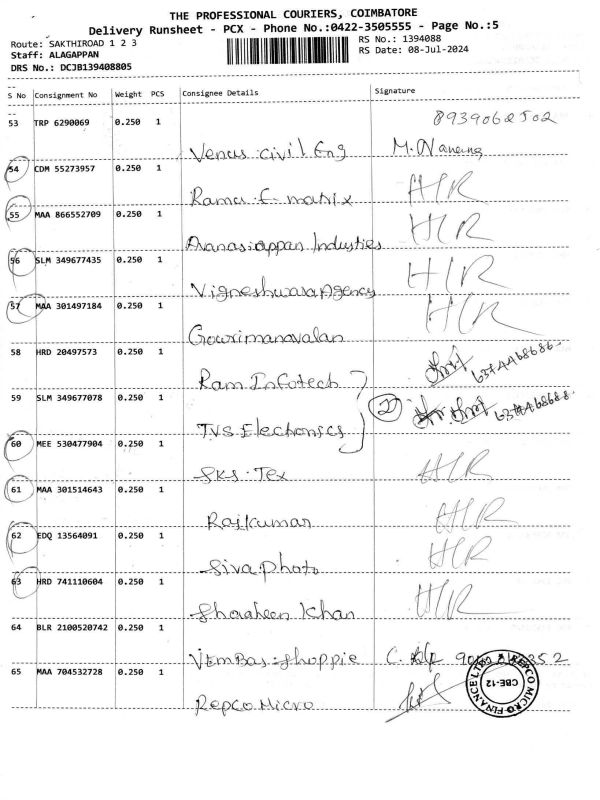 THE PROFESSIONAL COURIERS, COIMBATORE
Delivery Runsheet - PCX - Phone No.:0422-3505555 - Page No.:5
Route: SAKTHIROAD 1 2 3
RS No.: 1394088
Staff: ALAGAPPAN
RS Date: 08-Jul-2024
DRS No.: DCJB139408805
S No Consignment No Weight PCS Consignee Details Signature
53 TRP 6290069 0.250 1
8939062502
Venus civil Eng M.
54 CDM 55273957 0.250 1
Rama E-matrix HIR
55 MAA 866552709 0.250 1
Avanasiappan Industies HIR
56 SLM 349677435 0.250 1
Vigneshwara Agency HIR
57 MAA 301497184 0.250 1
Gowrimanavalan HIR
58 HRD 20497573 0.250 1
Ram Infotech
59 SLM 349677078 0.250 1
2
TVS Electronics
60 MEE 530477904 0.250 1
SKS Tex HIR
61 MAA 301514643 0.250 1
Rajkumar HIR
62 EDQ 13564091 0.250 1
Siva photo HIR
63 HRD 741110604 0.250 1
Shaaheen Khan HIR
64 BLR 2100520742 0.250 1
VEMBas shoppie C.
65 MAA 704532728 0.250 1
Repco Micro
REPCO MICRO FINANCE LTD
CBE-12